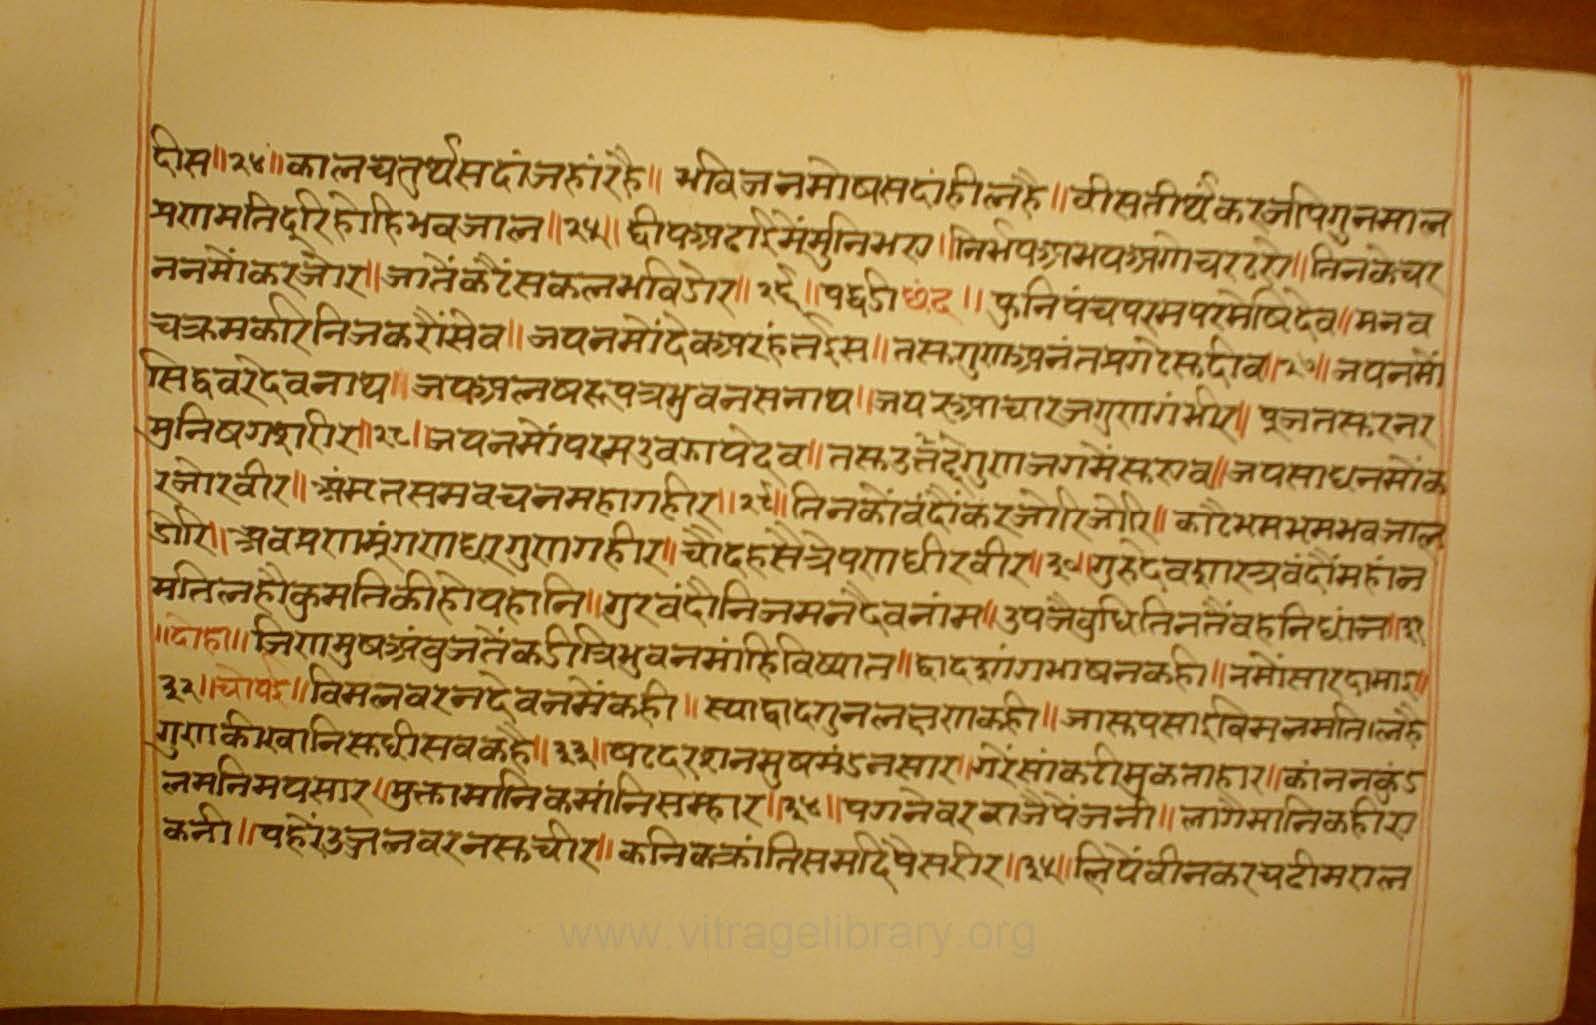 दीस॥२४॥ कालचतुर्थसदांजहांरहै॥ भविजनमोषसदांहीलहै॥ वीसतीर्थंकरजपिगुनमाल
प्रणमतिदूरिहोहिभवजाल॥२५॥ द्वीपअढाईमैंमुनिभए॥ निर्भयअभयअगोचरठऐ॥ तिनकेचर
ननमौंकरजोर॥ जातैंकटैंसकलभविडोर॥२६॥ पद्धडीछंद॥ फुनिपंचपरमपरमेष्ठिदेव॥ मनव
चक्रमकरिनिजकरौंसेव॥ जयनमौंदेवअरहंतईस॥ तसगुणअनंतप्रगटेसदीव॥२७॥ जयनमौं
सिद्धवरदेवनाथ॥ जयअलषरूपत्रभुवनसनाथ॥ जयआचारजगुणगंभीर॥ पूजतसुरनर
मुनिषगशरीर॥२८॥ जयनमौंपरमउवझायदेव॥ तसउत्तरगुणजगमैंसुएव॥ जयसाधनमौंक
रजोरवीर॥ अंमृतसमवचनमहागहीर॥२९॥ तिनकौंवंदौंकरजोरिजोरि॥ काटैभमभमभवजाल
डोरि॥ अवप्रणमूंगणधरगुणगहीर॥ चौदहसैत्रेपणधीरवीर॥३०॥ गुरुदेवशास्त्रवंदौंमहांन
मतिलहौकुमतिकीहोयहानि॥ गुरवंदौनिजमनदैवनांम॥ उपजैवुधितिनतैंवहनिधांन॥३१
॥दोहा॥ जिणमुषअंवुजतेंकडीत्रिभुवनमांहिविष्यात॥ द्वादशांगभाषनकही॥ नमौंसारदामाइ॥
३२॥ चोपई॥ विमलवरनदेवनमेंकही॥ स्याद्वादगुनलक्षणकही॥ जासुपसाइविमलमतिलहै
गुणकीखानिसुधीसवकहै॥३३॥ षटदरशनमुषमंडनसार॥ गरेंसांकटीमुकताहार॥ कांननकुंड
लमनिमयसार॥ मुक्तामानिकमांनिसम्हार॥३४॥ पगनेवरवाजैपैंजनी॥ लागैमानिकहीरा
कनी॥ पहरेंउज्जलवरनसुचीर॥ कनिकक्रांतिसमदिपैसरीर॥३५॥ लियेंवीनकरचढीमराल
www.vitragelibrary.org